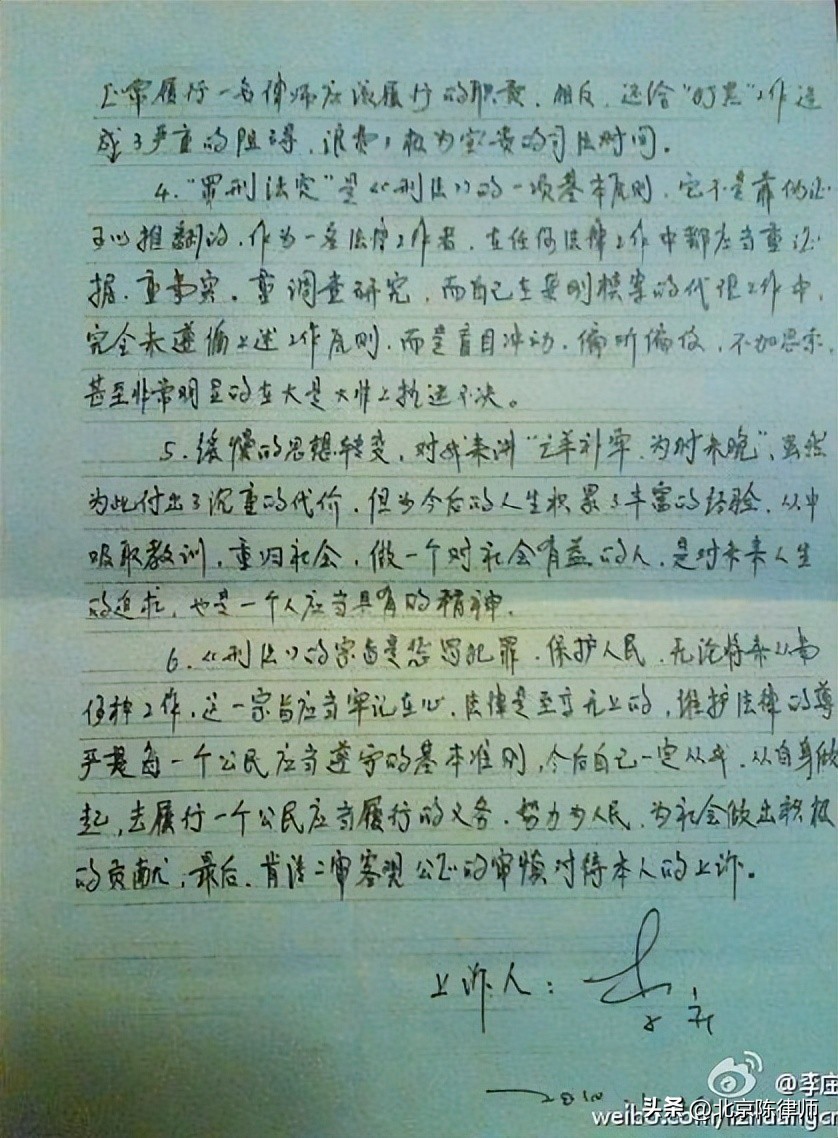 正常履行一名律师应该履行的职责，相反，还给“打黑”工作造
成了严重的阻碍，浪费了极为宝贵的司法时间。
4.“罪刑法定”是《刑法》的一项基本原则，它不是靠伪证
可以推翻的，作为一名法律工作者，在任何法律工作中都应当重证
据，重事实，重调查研究，而自己在龚刚模案的代理工作中，
完全未遵循上述工作原则，而是盲目冲动，偏听偏信，不加思索，
甚至非常明显的在大是大非上执迷不决。
5.缓慢的思想转变，对我来讲“亡羊补牢，为时未晚”，虽然
为此付出了沉重的代价，但为今后的人生积累了丰富的经验，从中
吸取教训，重归社会，做一个对社会有益的人，是对未来人生
的追求，也是一个人应当具有的精神。
6.《刑法》的宗旨是惩罚犯罪，保护人民，无论将来从事
何种工作，这一宗旨应当牢记在心，法律是至高无上的，维护法律的尊
严是每一个公民应当遵守的基本准则，今后自己一定从我，从自身做
起，去履行一个公民应当履行的义务，努力为人民，为社会做出积极
的贡献，最后，肯请二审客观公正的审慎对待本人的上诉。
上诉人：李庄
2010
@李庄
weibo.com/lizhuangcn
头条 @北京陈律师